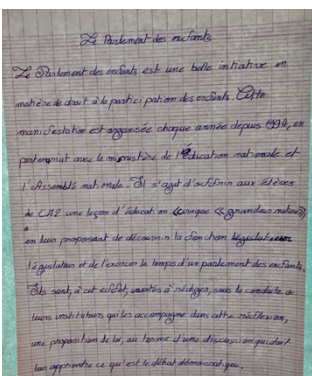 Le Parlement des enfants
Le Parlement des enfants est une belle initiative en
matière de droit à la participation des enfants. Cette
manifestation est organisée chaque année depuis 1994, en
partenariat avec le ministère de l'éducation nationale et
l'Assemblé nationale. Il s'agit d'offrir aux élèves
de CM2 une leçon d'éducation civique « grandeur nature »,
en leur proposant de découvrir la fonction
législation et de l'exercer le temps d'un parlement des enfants.
Ils sont, à cet effet, invités à rédiger, sous la conduite de
leurs instituteurs qui les accompagne dans cette réflexion,
une proposition de loi, au terme d'une discussion qui doit
leur apprendre ce qu'est le débat démocratique.